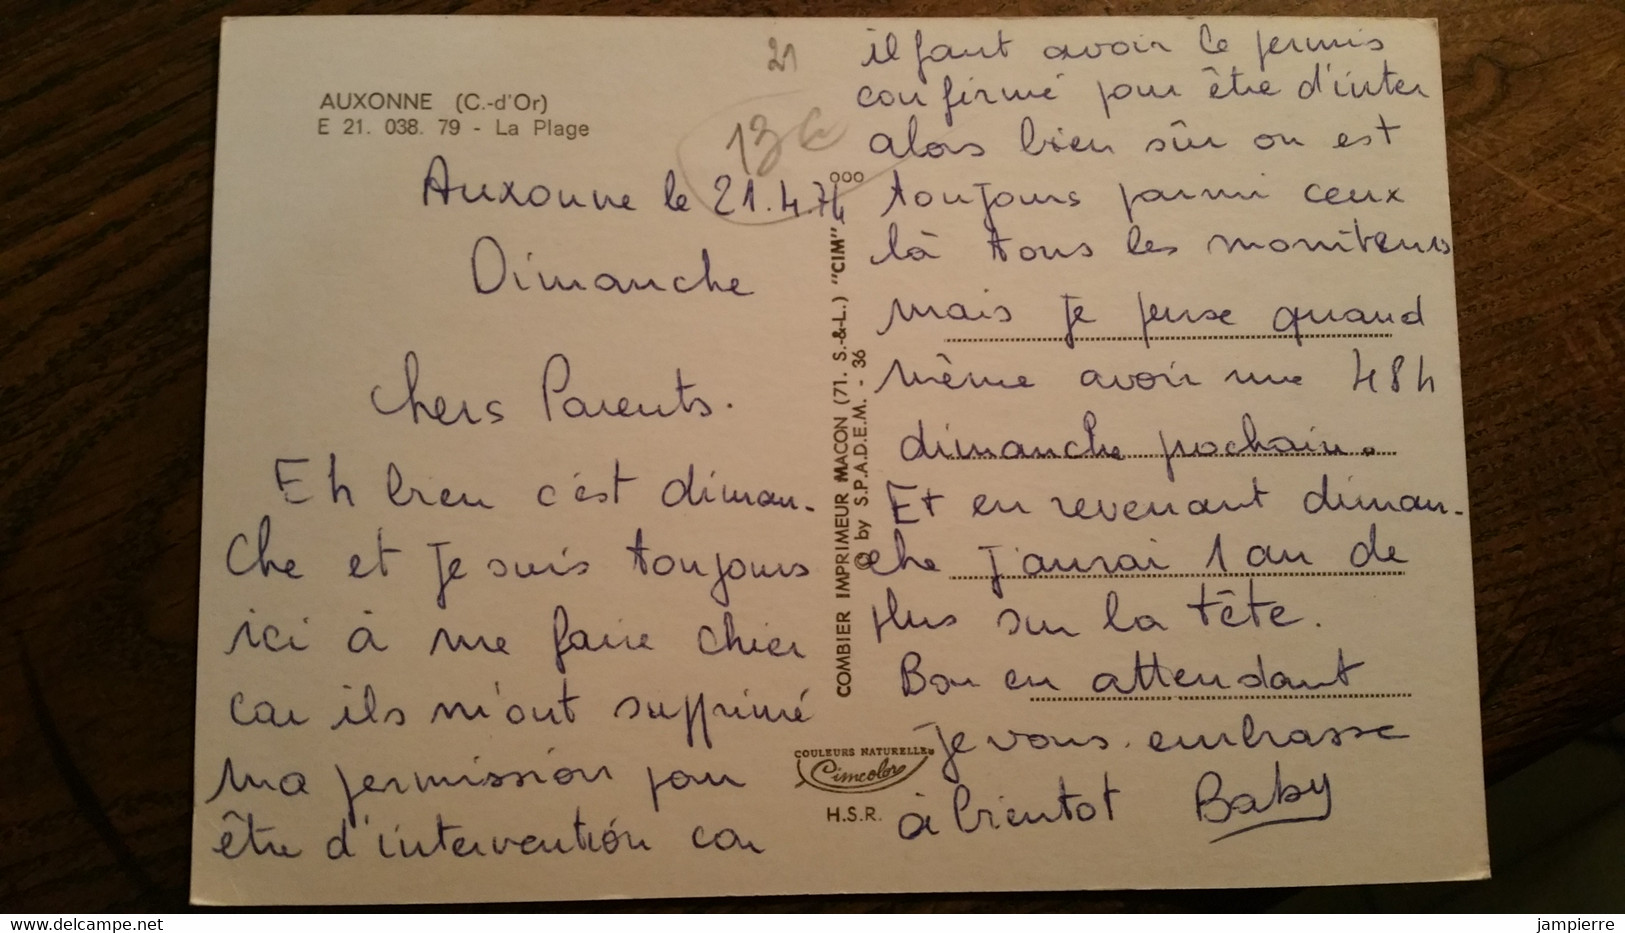 AUXONNE (C.-d'Or)
E 21. 038. 79 - La Plage
21
13
Auxonne le 21.4.74
Dimanche
Chers Parents.
Eh bien c'est diman-
che et je suis toujours
ici à me faire chier
car ils m'ont supprimé
ma permission pour
être d'intervention car
ooo
COMBIER IMPRIMEUR MACON (71. S.-&-L.) "CIM"
© by S.P.A.D.E.M. - 36
COULEURS NATURELLES
Cimcolor
H.S.R.
il faut avoir le permis
confirmé pour être d'inter
alors bien sûr on est
toujours parmi ceux
là tous les moniteurs
mais je pense quand
même avoir une 48h
dimanche prochain.
Et en revenant diman-
che j'aurai 1 an de
plus sur la tête.
Bon en attendant
je vous embrasse
à bientot Baby
jampierre